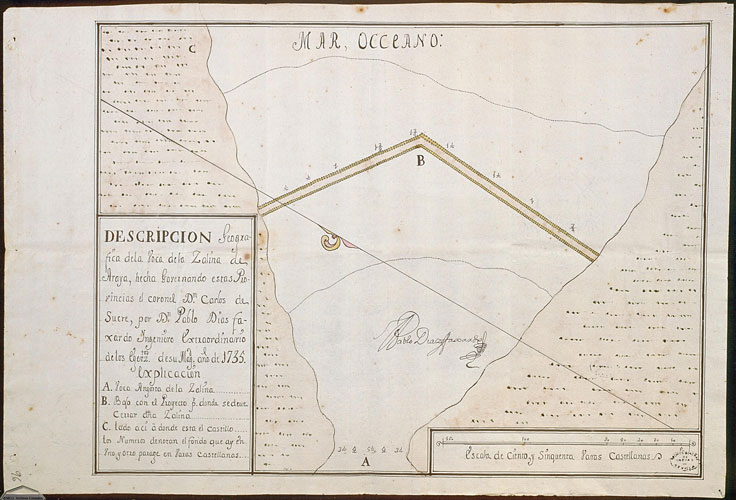 MAR, OCCEANO:
C
B
DESCRIPCION Geogra-
fica dela Voca dela Zalina de
Araya, hecha Governando estas Pro-
vincias el coronel Dn. Carlos de
Sucre, por Dn. Pablo Dias fa-
xardo Ingeniero Extraordinario
delos Exerz. desu Mag. año de 1735.
Explicacion
A. Voca Angosta de la Zalina
B. Bajo con el Proyecto p. donde sedeve
Cerrar dha Zalina
C. lado aci á donde esta el castillo
los Numeros denotan el fondo que ay en
Uno y otro parage en Varas Castellanas
Pablo Diaz Faxardo
A
Escala de Ciento, y Sinquenta Varas Castellanas
96